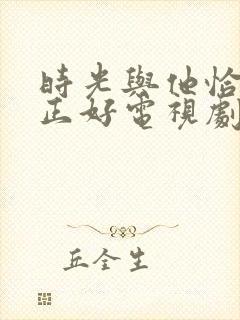 時光與他恰
正好電視劇
丘全生